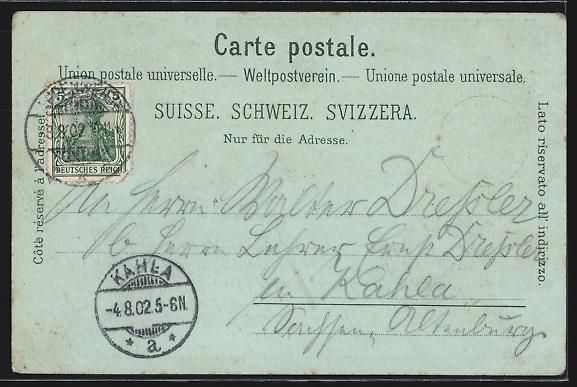 Carte postale.
Union postale universelle. — Weltpostverein. — Unione postale universale.
SUISSE. SCHWEIZ. SVIZZERA.
Nur für die Adresse.
Côté réservé à l'adresse.
Lato riservato all' indirizzo.
DEUTSCHES REICH
8.02
An Herrn Walter Dreßler
Herrn Lehrer Ernst Dreßler
in Kahla
Sachsen, Altenburg
KAHLA
-4.8.02.5-6N.
* a *